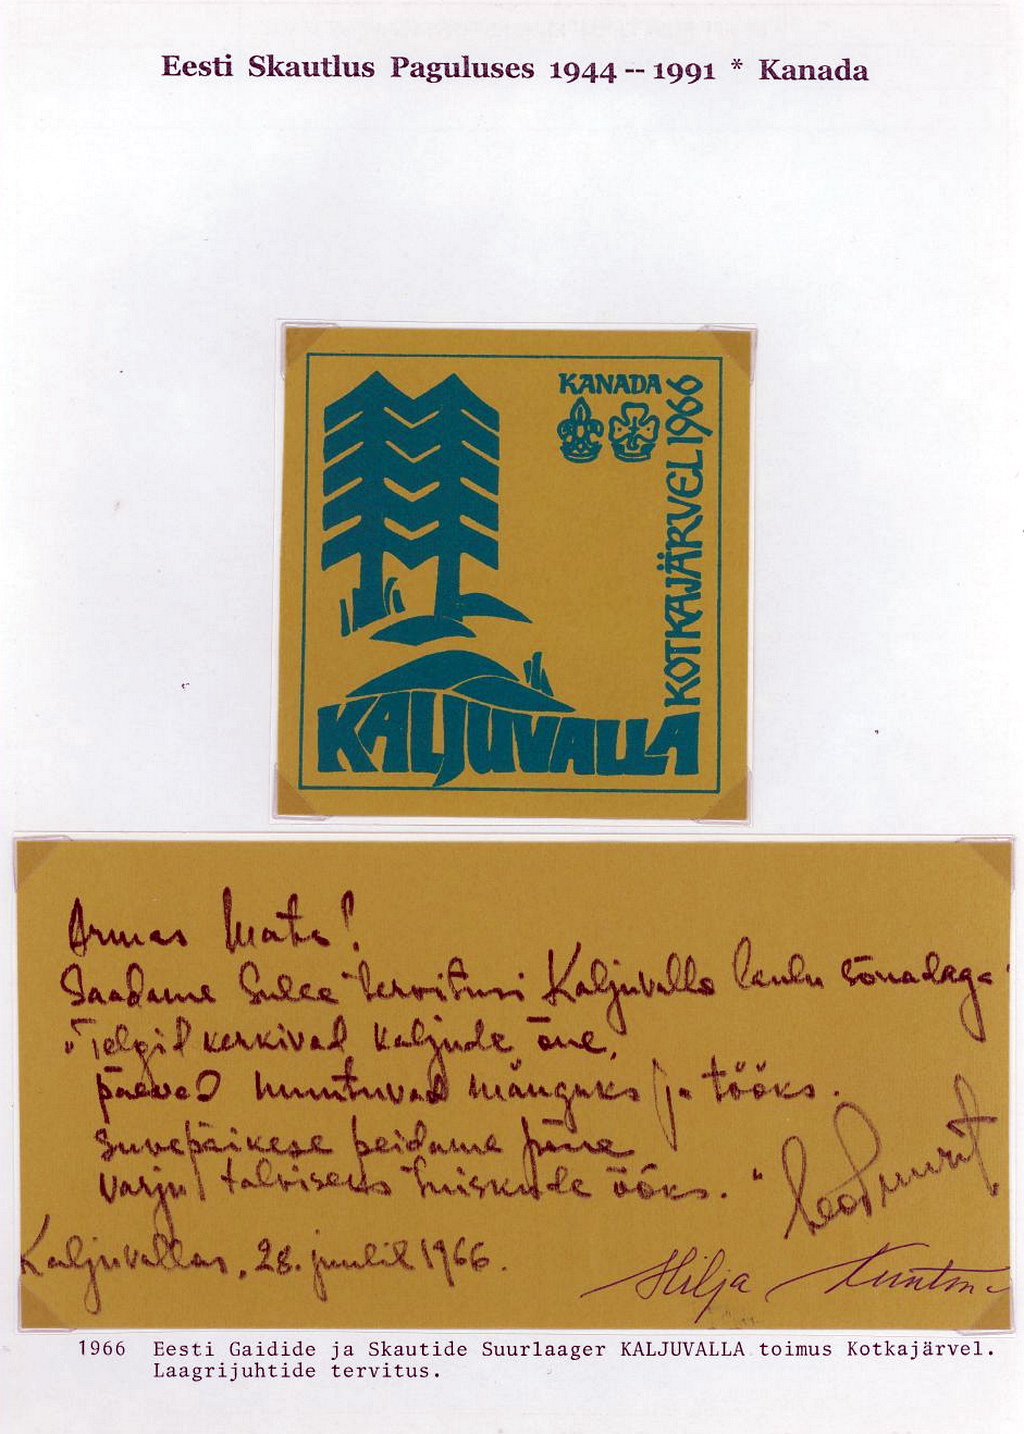 Eesti Skautlus Paguluses 1944 -- 1991 * Kanada
KANADA
KOTKAJÄRVEL 1966
KALJUVALLA
Armas Mats!
Saadame Sulle tervitusi Kaljuvalla laulu sõnadega
"Telgid kerkivad kaljude õue,
päevad muutuvad mänguks ja tööks.
Suvepäikese peidame põue
varju talviseks tuiskude ööks."
Kaljuvallas, 28. juulil 1966.
Hilja
1966 Eesti Gaidide ja Skautide Suurlaager KALJUVALLA toimus Kotkajärvel.
Laagrijuhtide tervitus.